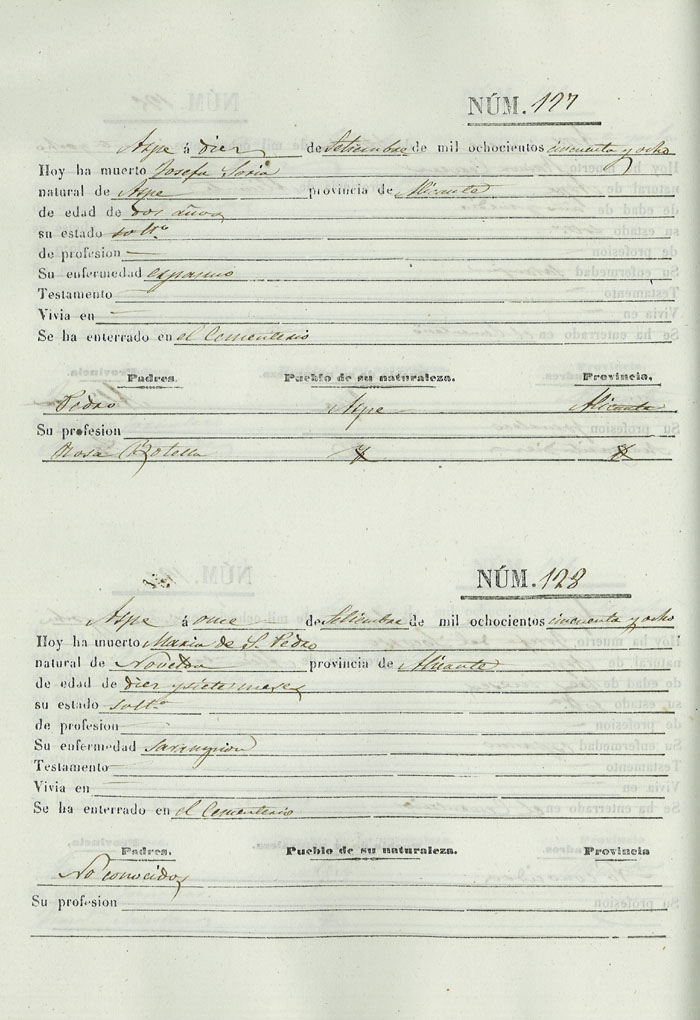 NÚM. 127
Aspe á diez de Setiembre de mil ochocientos cincuenta y ocho
Hoy ha muerto Josefa Soria
natural de Aspe provincia de Alicante
de edad de dos años
su estado solt.ª
de profesion —
Su enfermedad espasmo
Testamento —
Vivia en —
Se ha enterrado en el Cementerio
Padres. Pueblo de su naturaleza. Provincia.
Pedro Aspe Alicante
Su profesion
Rosa Botella
NÚM. 128
Aspe á once de Setiembre de mil ochocientos cincuenta y ocho
Hoy ha muerto Maria de S. Pedro
natural de Novelda provincia de Alicante
de edad de diez y siete meses
su estado solt.ª
de profesion —
Su enfermedad sarampion
Testamento —
Vivia en —
Se ha enterrado en el Cementerio
Padres. Pueblo de su naturaleza. Provincia
No conocidos
Su profesion